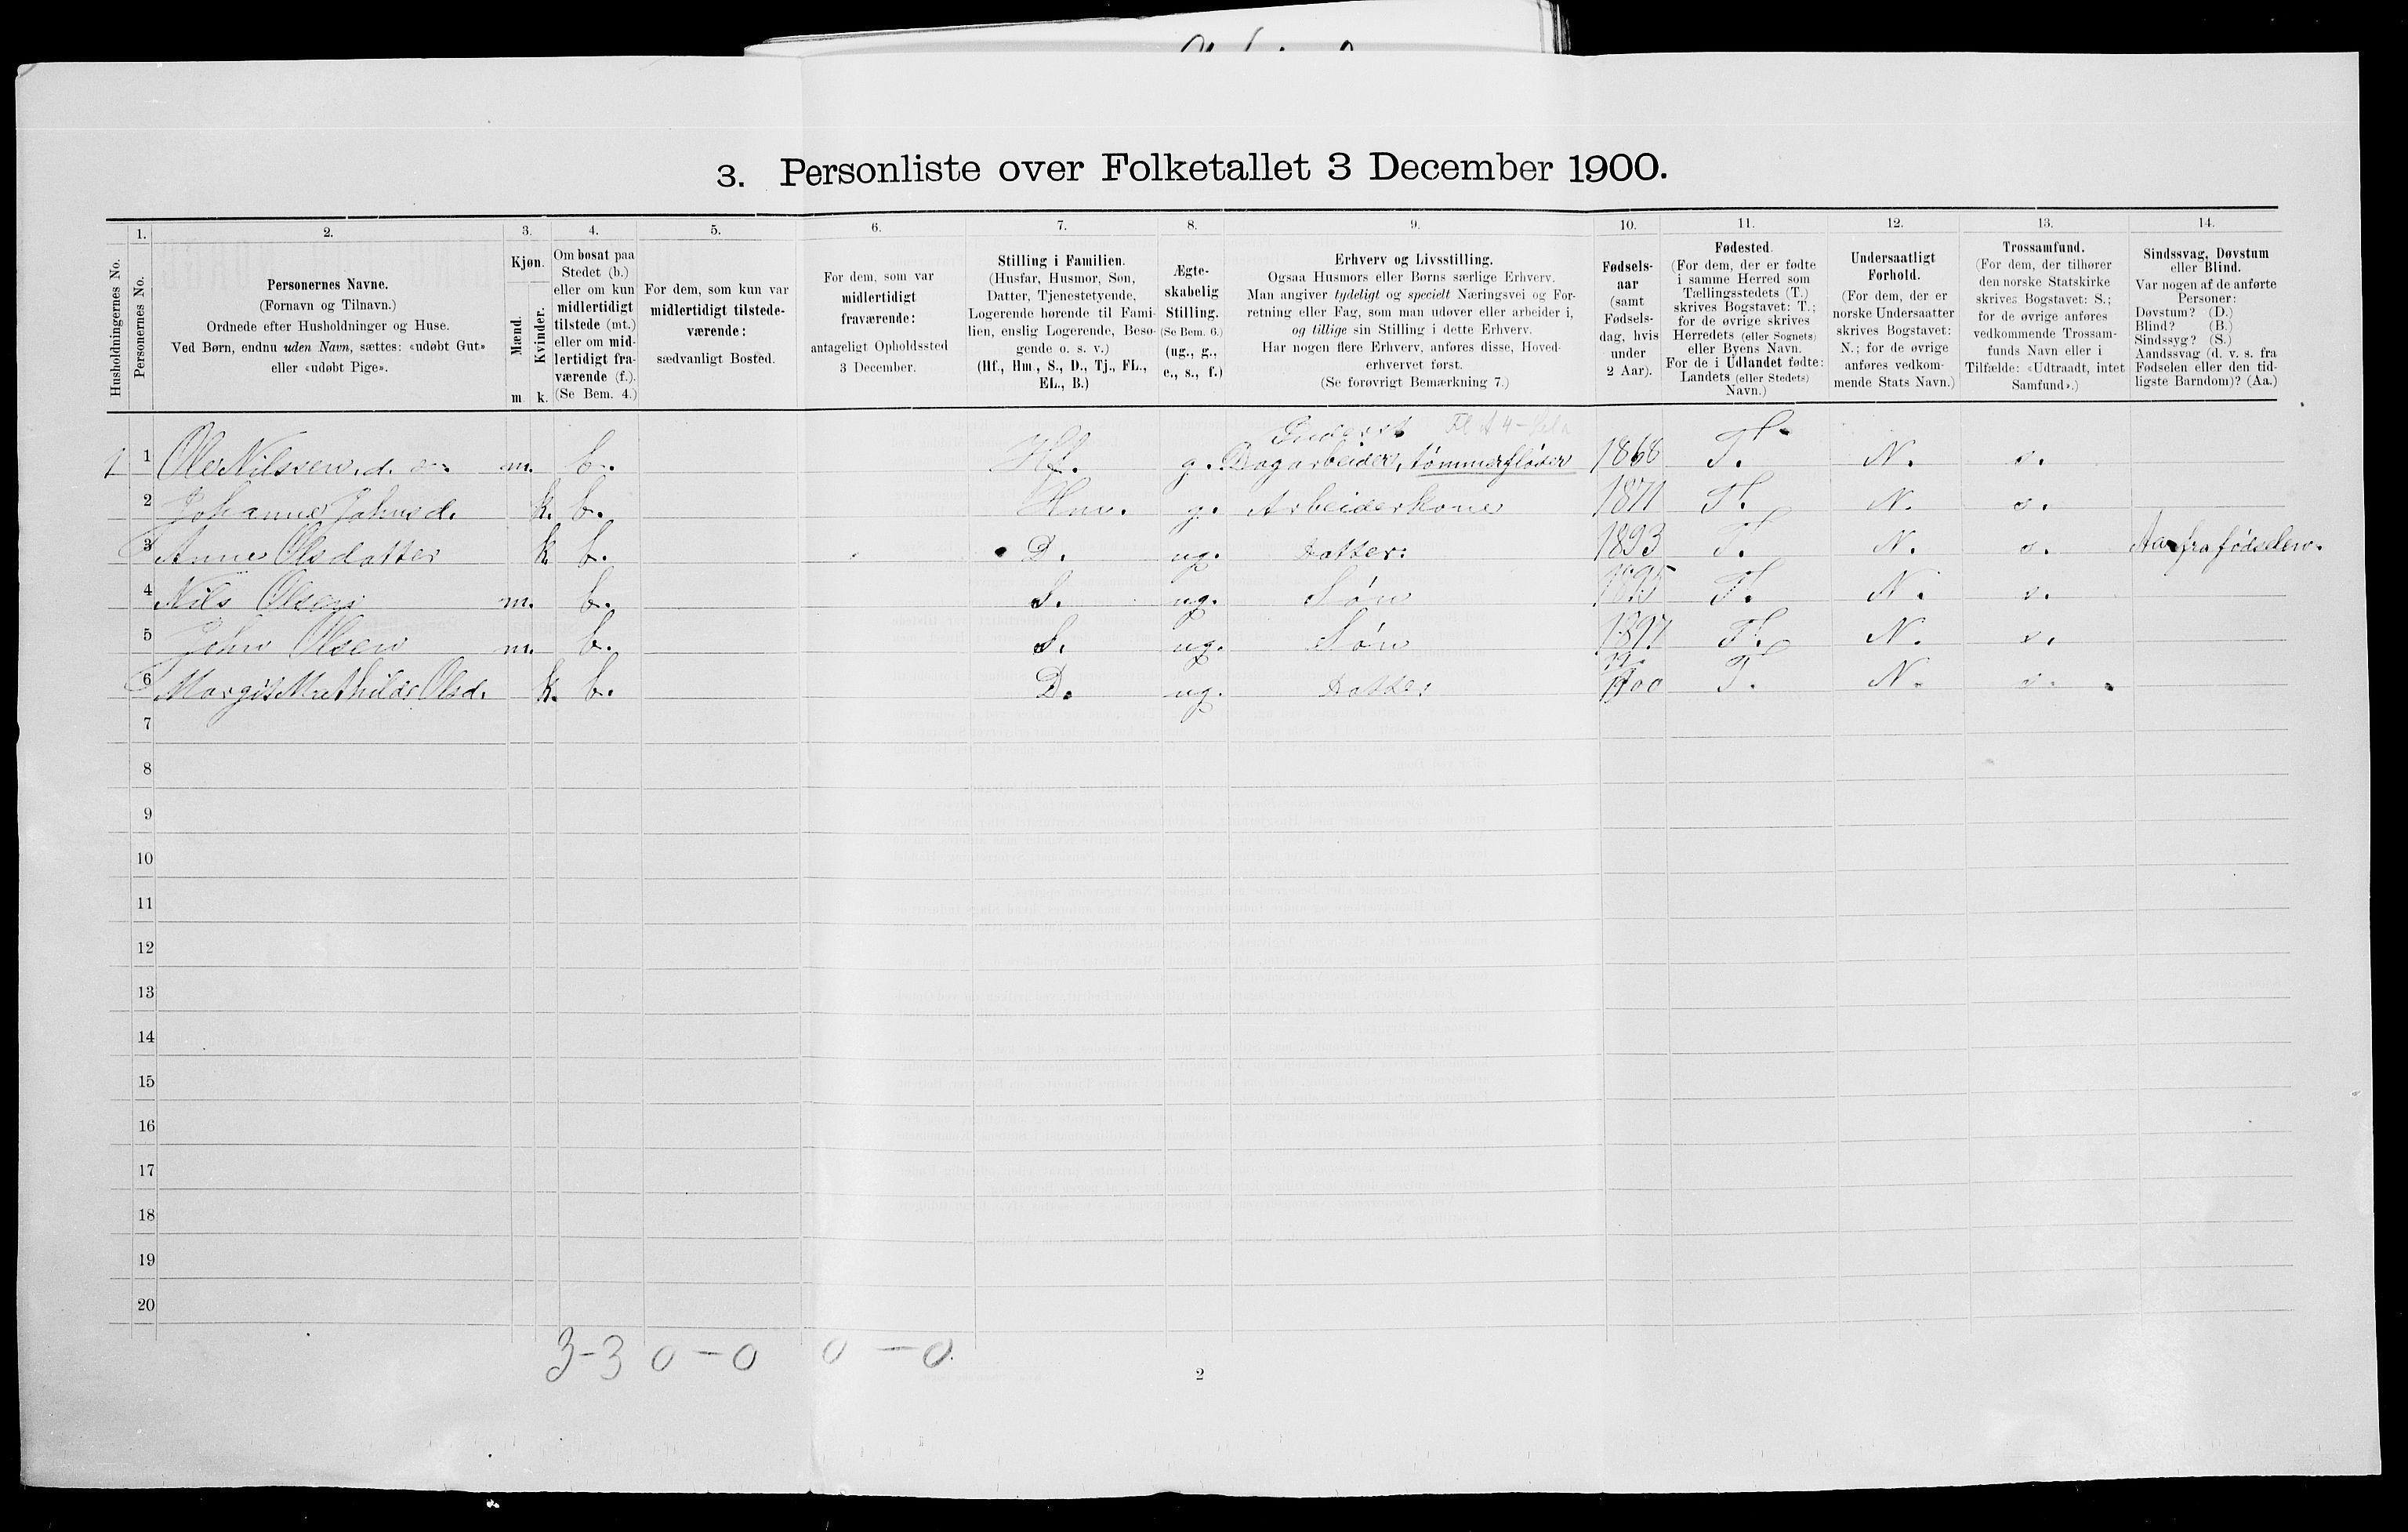 3. Personliste over Folketallet 3 December 1900.
1. 2. 3. 4. 5. 6. 7. 8. 9. 10. 11. 12. 13. 14.
Husholdningernes No.
Personernes No.
Personernes Navne.
(Fornavn og Tilnavn.)
Ordnede efter Husholdninger og Huse.
Ved Børn, endnu uden Navn, sættes: «udøbt Gut»
eller «udøbt Pige».
Kjøn.
Mænd.
Kvinder.
m k.
Om bosat paa
Stedet (b.)
eller om kun
midlertidigt
tilstede (mt.)
eller om mid-
lertidigt fra-
værende (f.).
(Se Bem. 4.)
For dem, som kun var
midlertidigt tilstede-
værende:
sædvanligt Bosted.
For dem, som var
midlertidigt
fraværende:
antageligt Opholdssted
3 December.
Stilling i Familien.
(Husfar, Husmor, Søn,
Datter, Tjenestetyende,
Logerende hørende til Fami-
lien, enslig Logerende, Besø-
gende o. s. v.)
(Hf., Hm., S., D., Tj., FL.,
EL., B.)
Ægte-
skabelig
Stilling.
(Se Bem. 6.)
(ug., g.,
e., s., f.)
Erhverv og Livsstilling.
Ogsaa Husmors eller Børns særlige Erhverv.
Man angiver tydeligt og specielt Næringsvei og For-
retning eller Fag, som man udøver eller arbeider i,
og tillige sin Stilling i dette Erhverv.
Har nogen flere Erhverv, anføres disse, Hoved-
erhvervet først.
(Se forøvrigt Bemærkning 7.)
Fødsels-
aar
(samt
Fødsels-
dag, hvis
under
2 Aar).
Fødested.
(For dem, der er fødte
i samme Herred som
Tællingsstedets (T.)
skrives Bogstavet: T.;
for de øvrige skrives
Herredets (eller Sognets)
eller Byens Navn.
For de i Udlandet fødte:
Landets (eller Stedets)
Navn.)
Undersaatligt
Forhold.
(For dem, der er
norske Undersaatter
skrives Bogstavet:
N.; for de øvrige
anføres vedkom-
mende Stats Navn.)
Trossamfund.
(For dem, der tilhører
den norske Statskirke
skrives Bogstavet: S.;
for de øvrige anføres
vedkommende Trossam-
funds Navn eller i
Tilfælde: «Udtraadt, intet
Samfund».)
Sindssvag, Døvstum
eller Blind.
Var nogen af de anførte
Personer:
Døvstum? (D.)
Blind? (B.)
Sindssyg? (S.)
Aandssvag (d. v. s. fra
Fødselen eller den tid-
ligste Barndom)? (Aa.)
1 1 Ole Nilssen d. m. b. Hf. g. Dagarbeider, tømmerfløder 1868 T. N. s.
2 Johanne Johnsd. k. b. Hm. g. Arbeiderkone 1871 T. N. s.
3 Anne Olsdatter k b. D. ug. Datter 1893 T. N. s. Aa fra fødselen.
4 Nils Olsen m. b. S. ug. Søn 1895 T. N. s.
5 John Olsen m. b. S. ug. Søn 1897 T. N. s.
6 Margit Mathilde Olsd. k. b. D. ug. Datter 1900 T. N. s.
7
8
9
10
11
12
13
14
15
16
17
18
19
20
3-3 0-0 0-0.
2